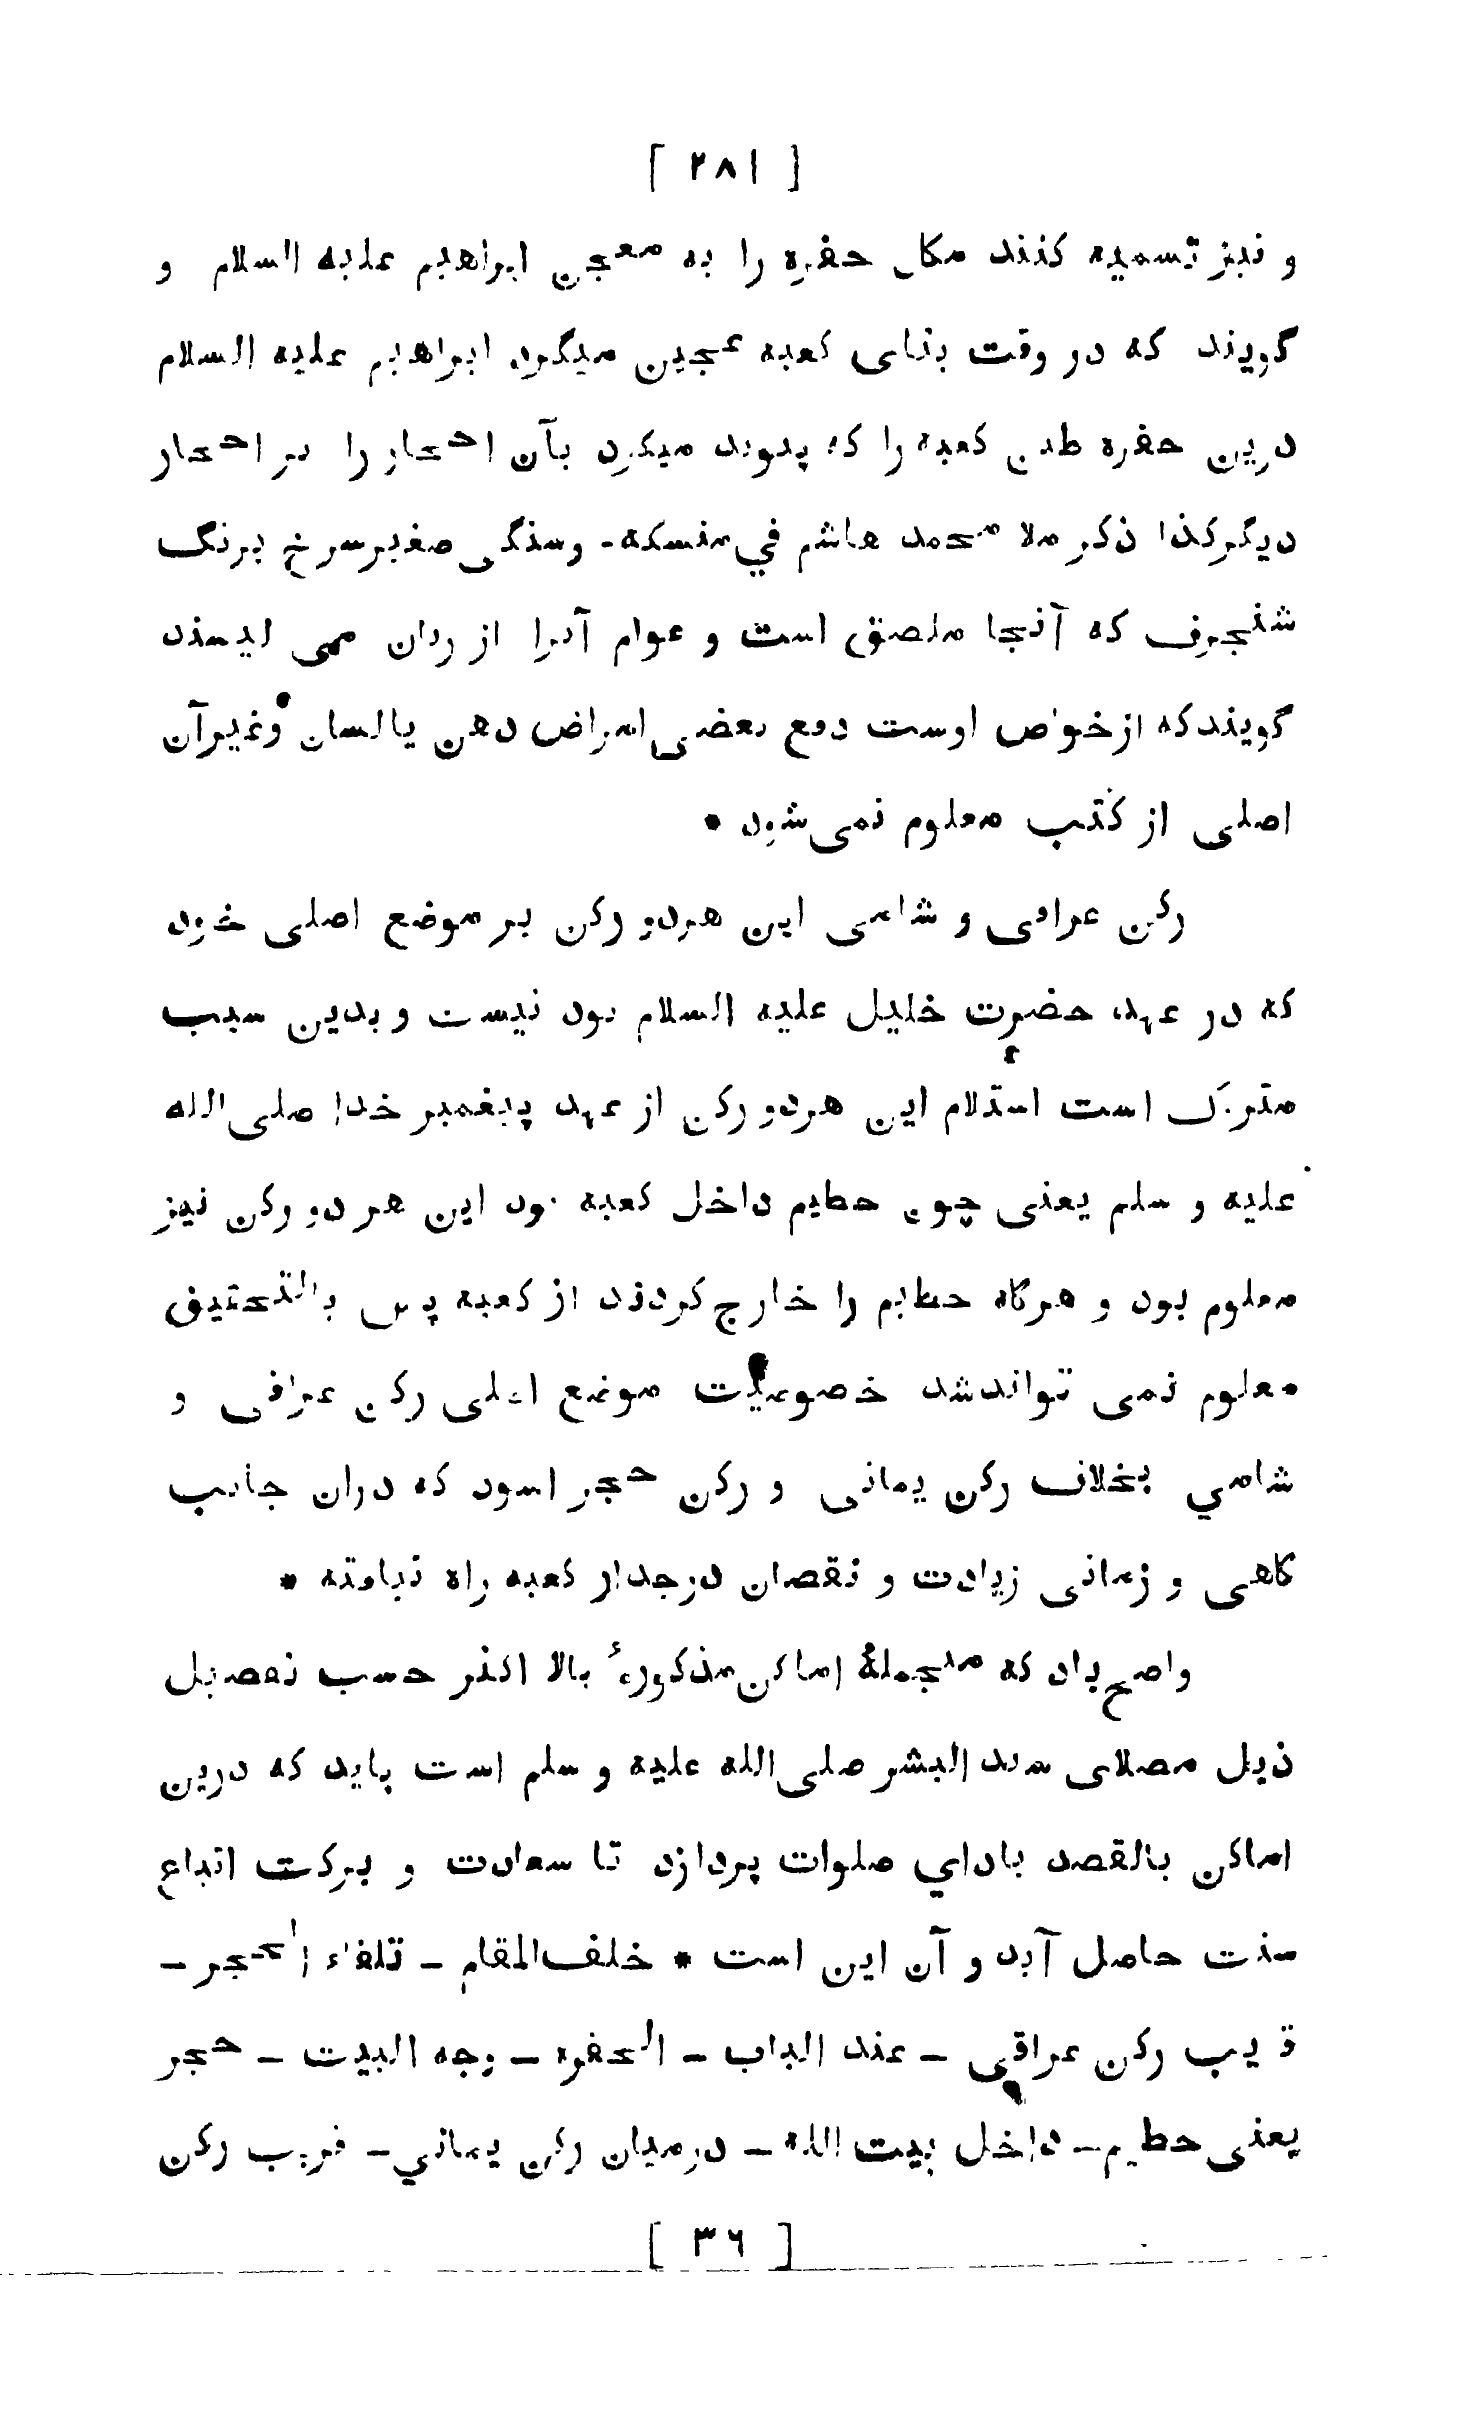 [ ۲۸۱ ]
و نیز تسمیه کنند مکان حفره را به معجن ابراهیم علیه السلام و
گویند که در وقت بنای کعبه عجین میکرد ابراهیم علیه السلام
درین حفره طین کعبه را که پیوند میکرد بآن احجار را بر احجار
دیگر کذا ذکر ملا محمد هاشم في منسکه - و سنگی صغیر سرخ برنگ
شنجرف که آنجا ملصق است و عوام آنرا از زبان می لیسند
گویند که از خواص اوست دفع بعضی امراض دهن یا لسان و غیر آن
اصلی از کتب معلوم نمی شود *
رکن عراقی و شامی این هردو رکن بر موضع اصلی خود
که در عهد حضرت خلیل علیه السلام بود نیست و بدین سبب
متروک است استلام این هردو رکن از عهد پیغمبر خدا صلی الله
علیه و سلم یعنی چون حطیم داخل کعبه بود این هر دو رکن نیز
معلوم بود و هرگاه حطیم را خارج کردند از کعبه پس بالتحقیق
معلوم نمی تواند شد خصوصیت موضع اصلی رکن عراقی و
شامي بخلاف رکن یمانی و رکن حجر اسود که دران جانب
گاهی و زمانی زیادت و نقصان در جدار کعبه راه نیافته *
واضح باد که منجملهٔ اماکن مذکورهٔ بالا اکثر حسب تفصیل
ذیل مصلای سید البشر صلی الله علیه و سلم است باید که درین
اماکن بالقصد بادای صلوات پردازد تا سعادت و برکت اتباع
سنت حاصل آید و آن این است * خلف المقام - تلقاء الحجر -
قریب رکن عراقی - عند الباب - الحفره - وجه البیت - حجر
یعنی حطیم - داخل بیت الله - درمیان رکن یماني - قریب رکن
[ ۳۶ ]